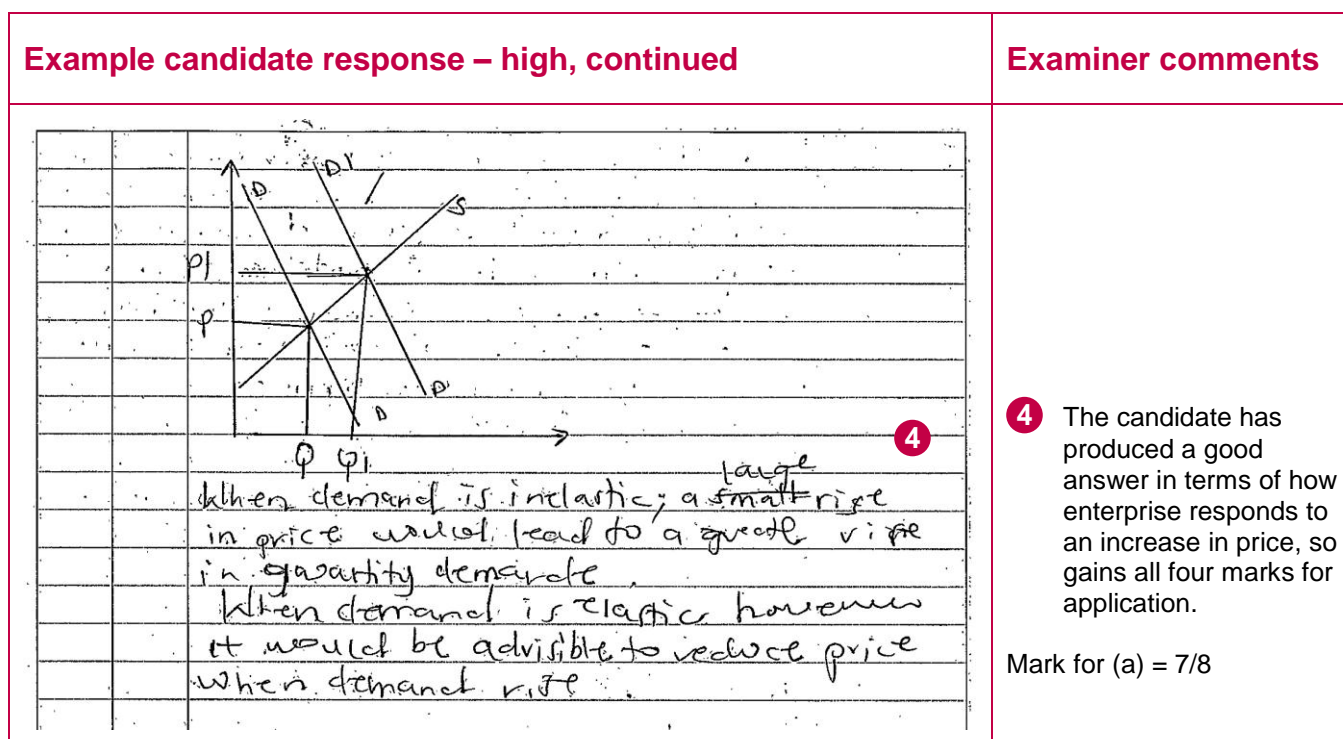 Example candidate response – high, continued
Examiner comments
D
D1
S
P1
P
D
D
Q Q1
4
large
When demand is inelastic; a small rise
in price would lead to a rise
in demande.
When demand is elastic however
it would be advisible to reduce price
when demand rise.
4 The candidate has
produced a good
answer in terms of how
enterprise responds to
an increase in price, so
gains all four marks for
application.
Mark for (a) = 7/8